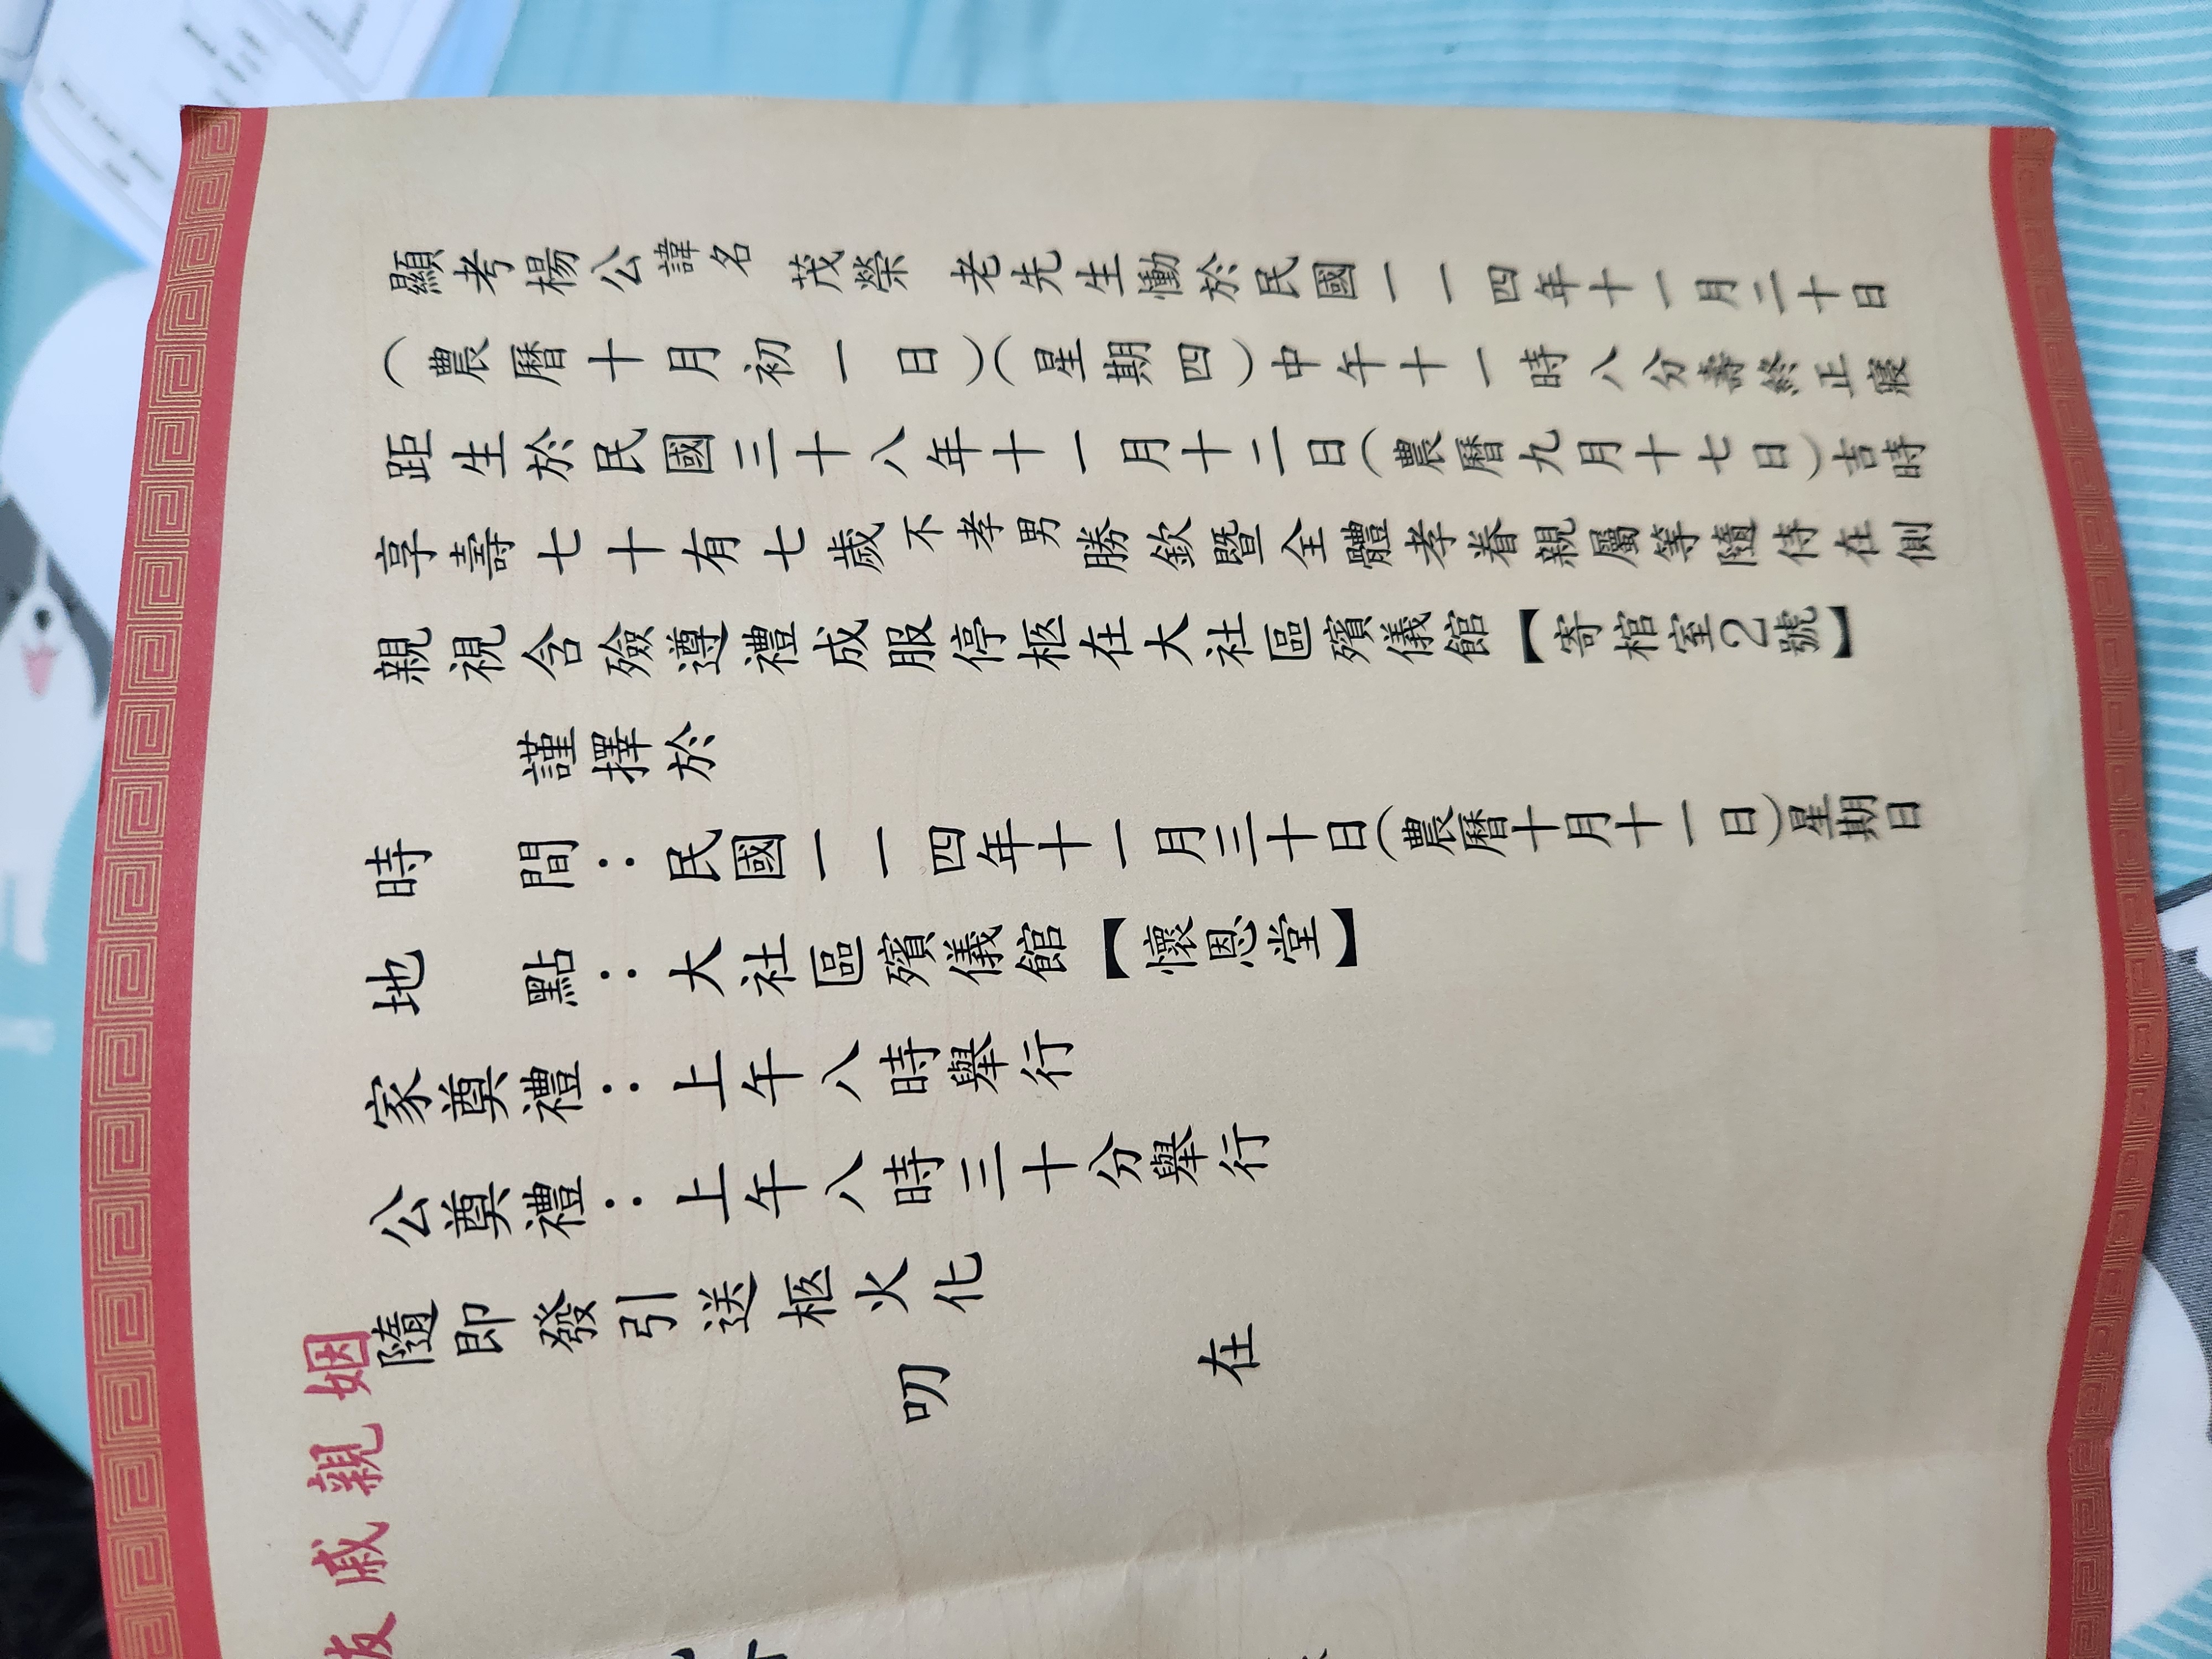 顯考楊公諱名茂榮老先生慟於民國一一四年十一月二十日
（農曆十月初一日）（星期四）中午十一時八分壽終正寢
距生於民國三十八年十一月十二日（農曆九月十七日）吉時
享壽七十有七歲不孝男勝欽暨全體孝眷親屬等隨侍在側
親視含殮遵禮成服停柩在大社區殯儀館【寄棺室2號】
謹擇於
時間：民國一一四年十一月三十日（農曆十月十一日）星期日
地點：大社區殯儀館【懷恩堂】
家奠禮：上午八時舉行
公奠禮：上午八時三十分舉行
隨即發引送柩火化
叨在
姻親戚友